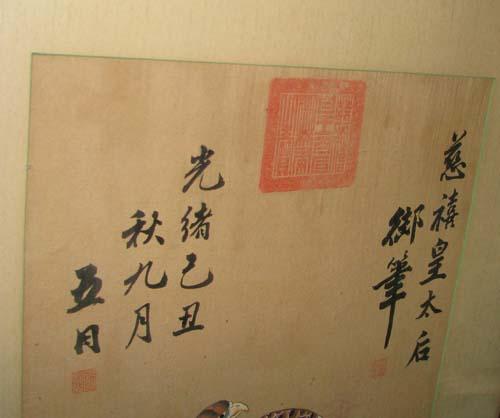 慈禧皇太后
御筆
光緒己丑
秋九月
五月